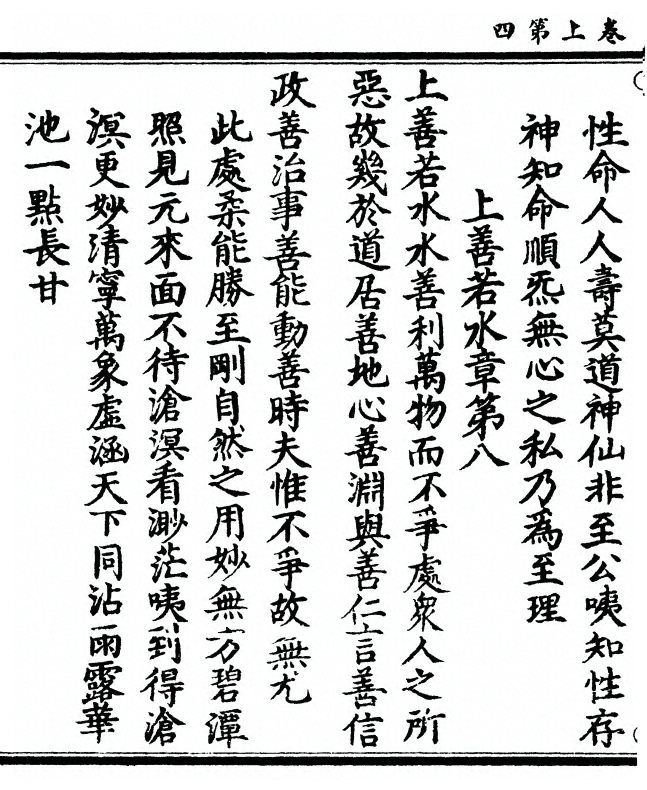 卷上第四
性命人人壽莫道神仙非至公咦知性存
神知命順炁無心之私乃為至理
上善若水章第八
上善若水水善利萬物而不爭處眾人之所
惡故幾於道居善地心善淵與善仁言善信
政善治事善能動善時夫惟不爭故無尤
此處柔能勝至剛自然之用妙無方碧潭
照見元來面不待滄溟看渺茫咦到得滄
溟更妙清寧萬象虛涵天下同沾雨露華
池一點長甘